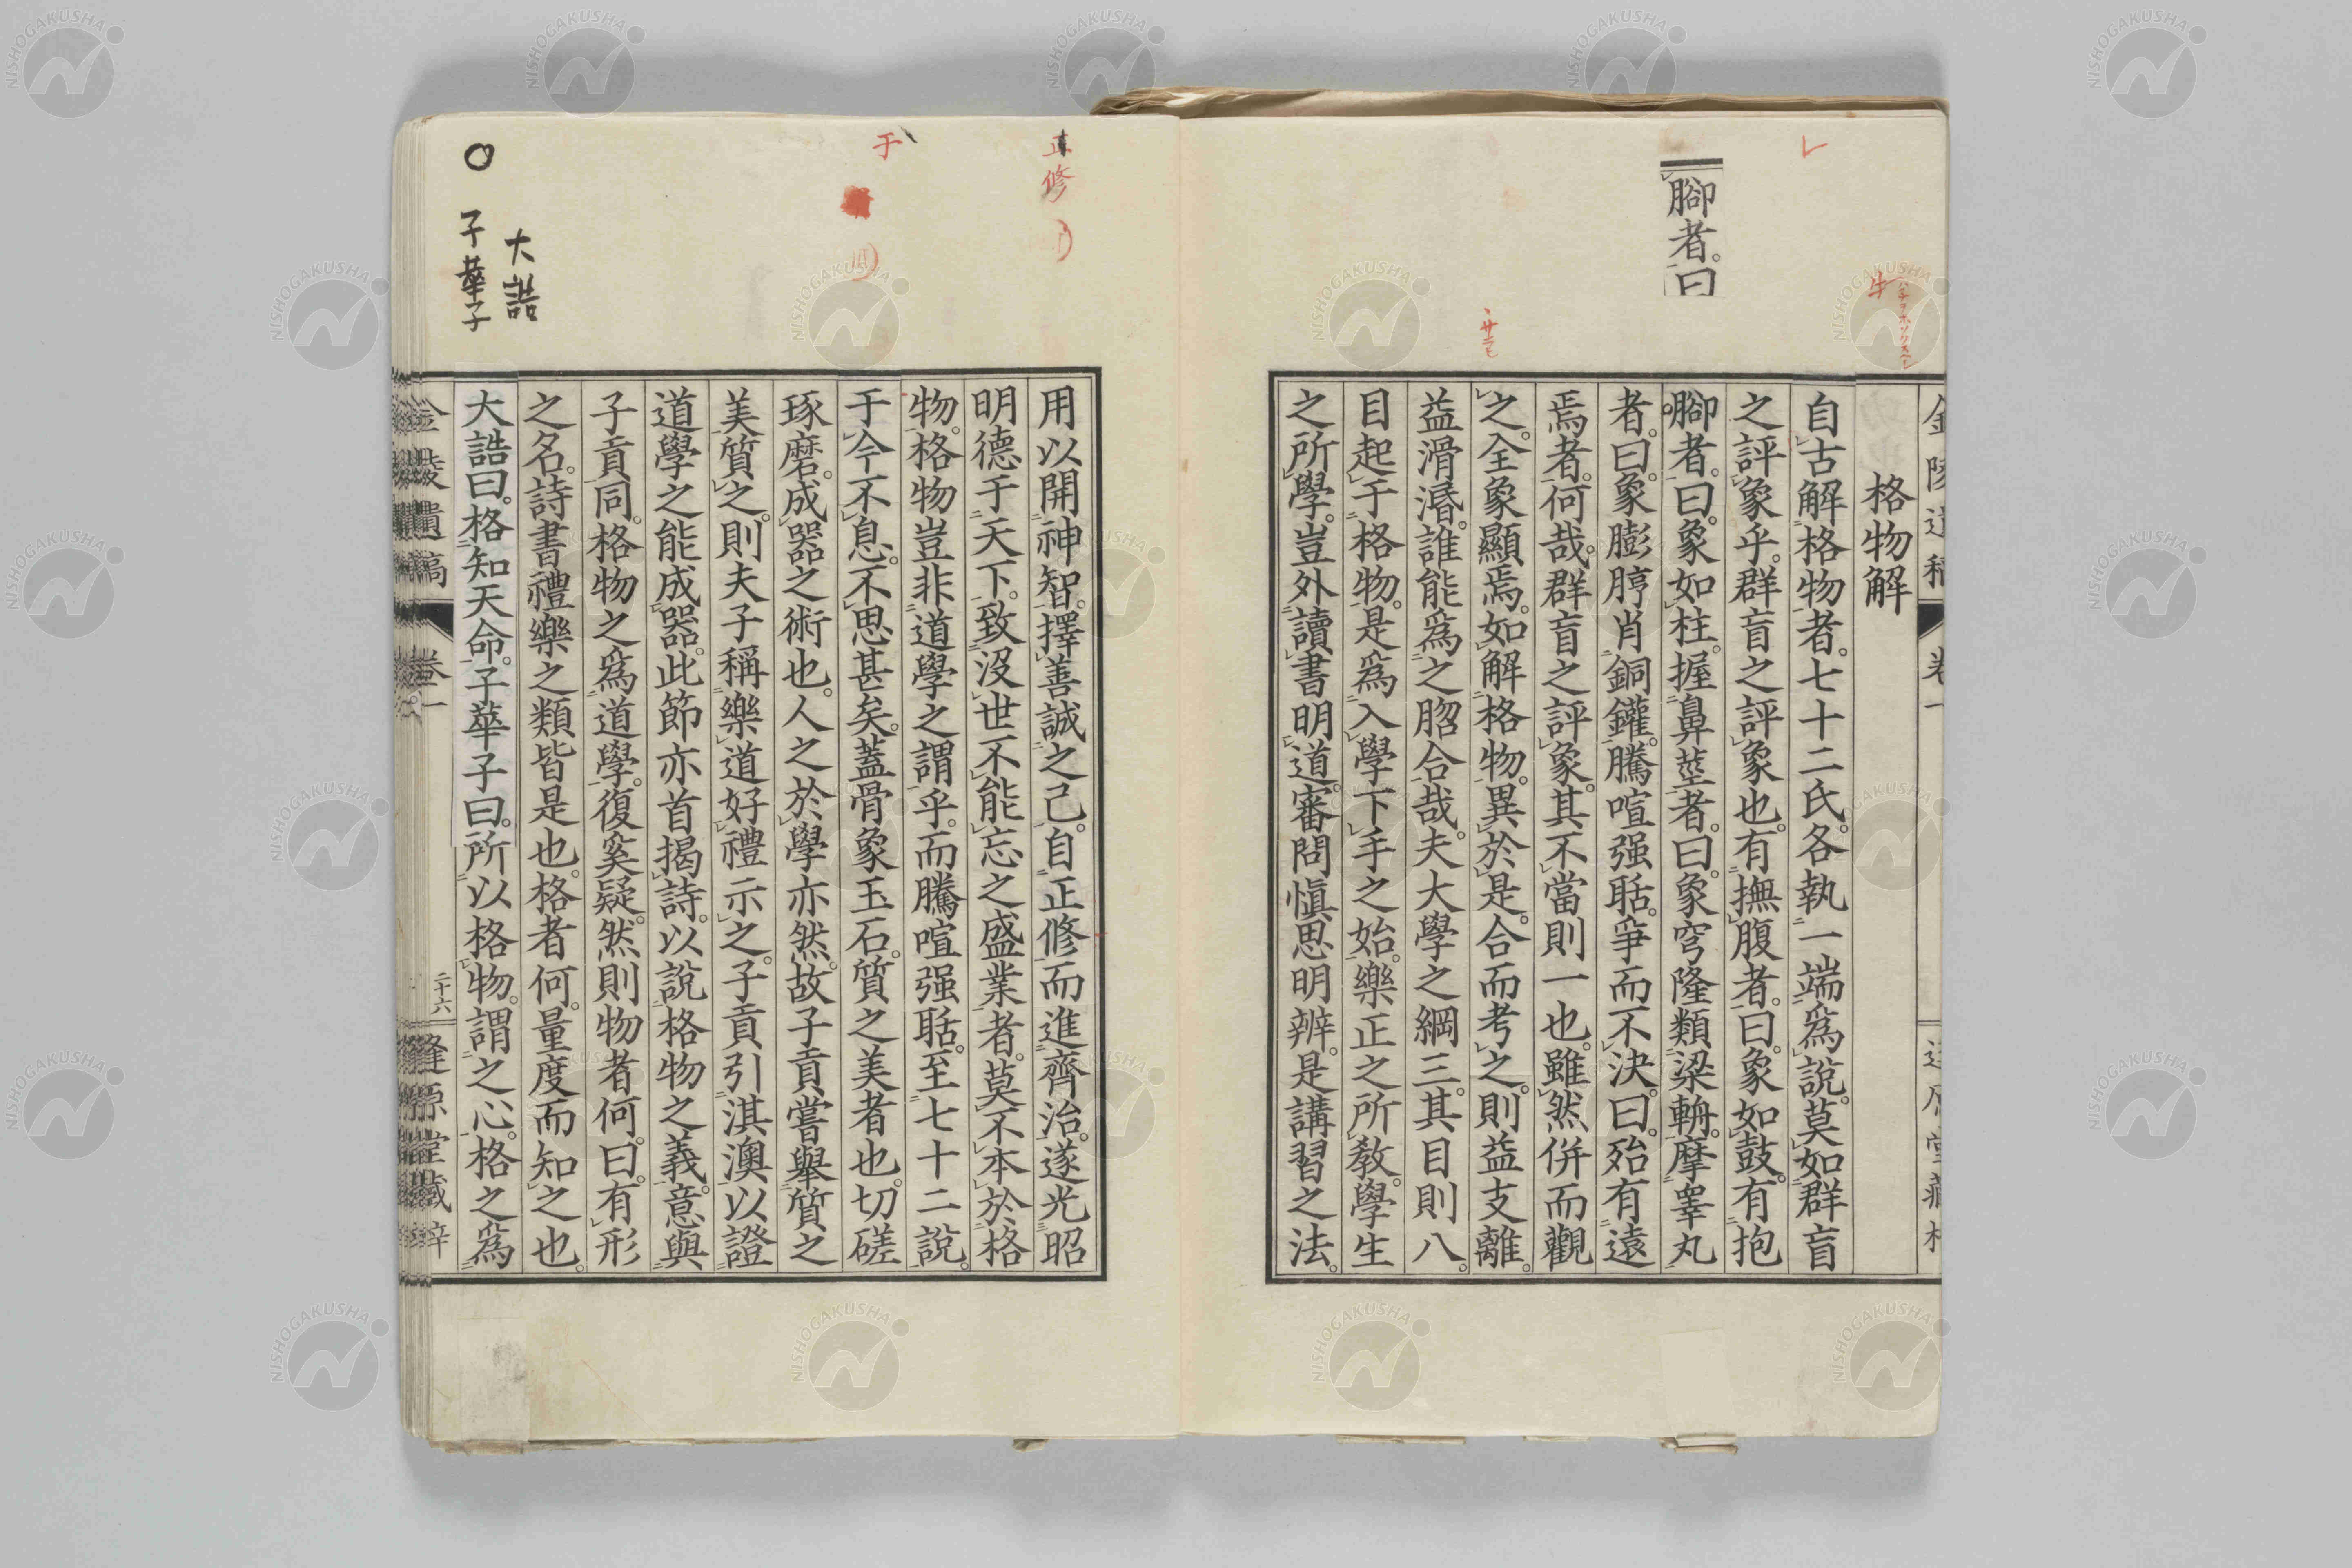 格物解
自古解格物者。七十二氏。各執一端爲說。莫如群盲
之評象乎。群盲之評象也。有撫腹者。曰。象如鼓。有抱
腳者。曰。象如柱。握鼻莖者。曰。象穹隆類梁輈。摩睾丸
者。曰。象膨脝肖銅鑵。騰喧强聒。爭而不決。曰。殆有遠
焉者。何哉。群盲之評象。其不當則一也。雖然併而觀
之。全象顯焉。如解格物。異於是。合而考之。則益支離。
益滑湣。誰能爲之脗合哉。夫大學之綱三。其目則八。
目起于格物。是爲入學下手之始。樂正之所教。學生
之所學。豈外讀書明道。審問愼思明辨。是講習之法。
腳者。曰
用以開神智。擇善誠之己。自正修而進齊治。遂光昭
明德于天下。致沒世不能忘之盛業者。莫不本於格
物。格物豈非道學之謂乎。而騰喧强聒。至七十二說。
于今不息。不思甚矣。蓋骨象玉石。質之美者也。切磋
琢磨。成器之術也。人之於學亦然。故子貢嘗擧質之
美質之。則夫子稱樂道好禮示之。子貢引淇澳以證
道學之能成器。此節亦首揭詩。以說格物之義。意與
子貢同。格物之爲道學。復奚疑。然則物者何。曰。有形
之名。詩書禮樂之類皆是也。格者何。量度而知之也。
大誥曰。格知天命。子華子曰。所以格物。謂之心。格之爲
金陵遺稿
卷一
二十六
逢原堂藏梓
正修
于
大誥
子華子